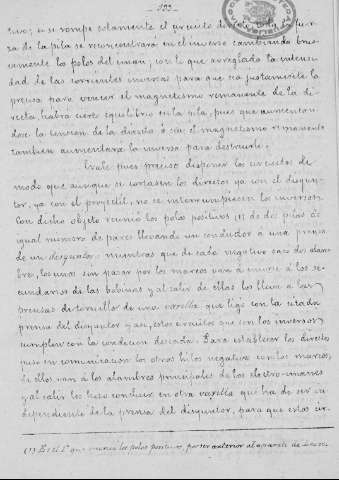 103
sivo; si se rompe solamente el circuito
de la pila se reconcentrará en el inverso cambiando brus-
camente los polos del iman, con lo que arreglada la intensi-
dad de las corrientes inversas para que sea justamente la
precisa para vencer el magnetismo remanente de la di-
recta, habrá cierto equilibrio en la pila, pues que aumentan-
do la tension de la directa ó sea el magnetismo remanente
tambien aumentará la inversa para destruirle.
Érale pues preciso disponer los circuitos de
modo que aunque se cortasen los directos ya con el disyun-
tor, ya con el proyectil, no se interrumpiesen los inversos.
Con dicho objeto reunió los polos positivos (1) de dos pilas de
igual número de pares llevando un conductor á una prensa
de un disyuntor; mientras que de cada negativo saco dos alam-
bres, los unos sin pasar por los marcos van á unirse á los se-
cundarios de las bobinas y al salir de ellas los lleva á las
prensas de tornillo de una varilla que ligó con la citada
prensa del disyuntor y asi, estos circuitos que son los inversos
cumplen con la condicion deseada. Para establecer los directos
puso en comunicacion los otros hilos negativos con los marcos,
de ellos van á los alambres principales de los electro-imanes
y al salir les hizo concluir en otra varilla que ha de ser in-
dependiente de la prensa del disyuntor, para que estos cir-
(1) Es el 1º que reunió los polos positivos, por ser anterior al aparato de